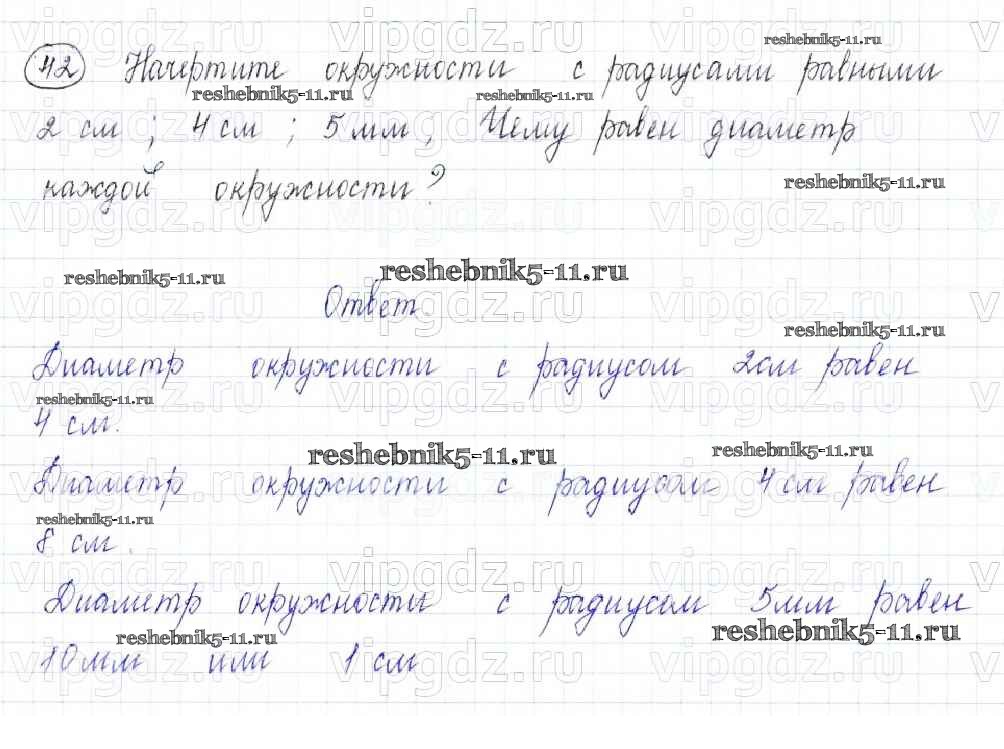 42 Начертите окружности с радиусами равными
2 см ; 4 см ; 5 мм, Чему равен диаметр
каждой окружности?
Ответ
Диаметр окружности с радиусом 2см равен
4 см.
Диаметр окружности с радиусом 4 см равен
8 см.
Диаметр окружности с радиусом 5мм равен
10мм или 1 см
reshebnik5-11.ru
reshebnik5-11.ru
reshebnik5-11.ru
reshebnik5-11.ru
reshebnik5-11.ru
reshebnik5-11.ru
reshebnik5-11.ru
reshebnik5-11.ru
reshebnik5-11.ru
reshebnik5-11.ru
reshebnik5-11.ru
reshebnik5-11.ru
reshebnik5-11.ru
vipgdz.ru vipgdz.ru vipgdz.ru vipgdz.ru